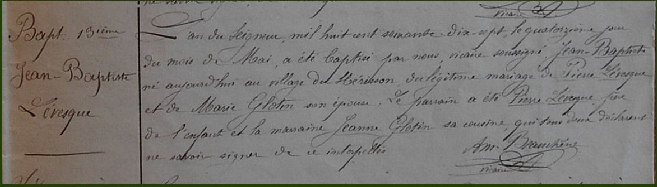 Bapt. 13ième
Jean-Baptiste
Lévesque
L'an du Seigneur, mil huit cent soixante dix sept, le quatorzième jour
du mois de Mai, a été baptisé par nous, vicaire soussigné Jean-Baptiste
né aujourd'hui au village du du légitime mariage de Pierre Lévesque
et de Marie Glotin son épouse. Le parrain a été Pierre Levesque, frère
de l'enfant et la marraine Jeanne Glotin sa cousine qui tous deux déclarent
ne savoir signer de ce interpellés
Am.
vicaire